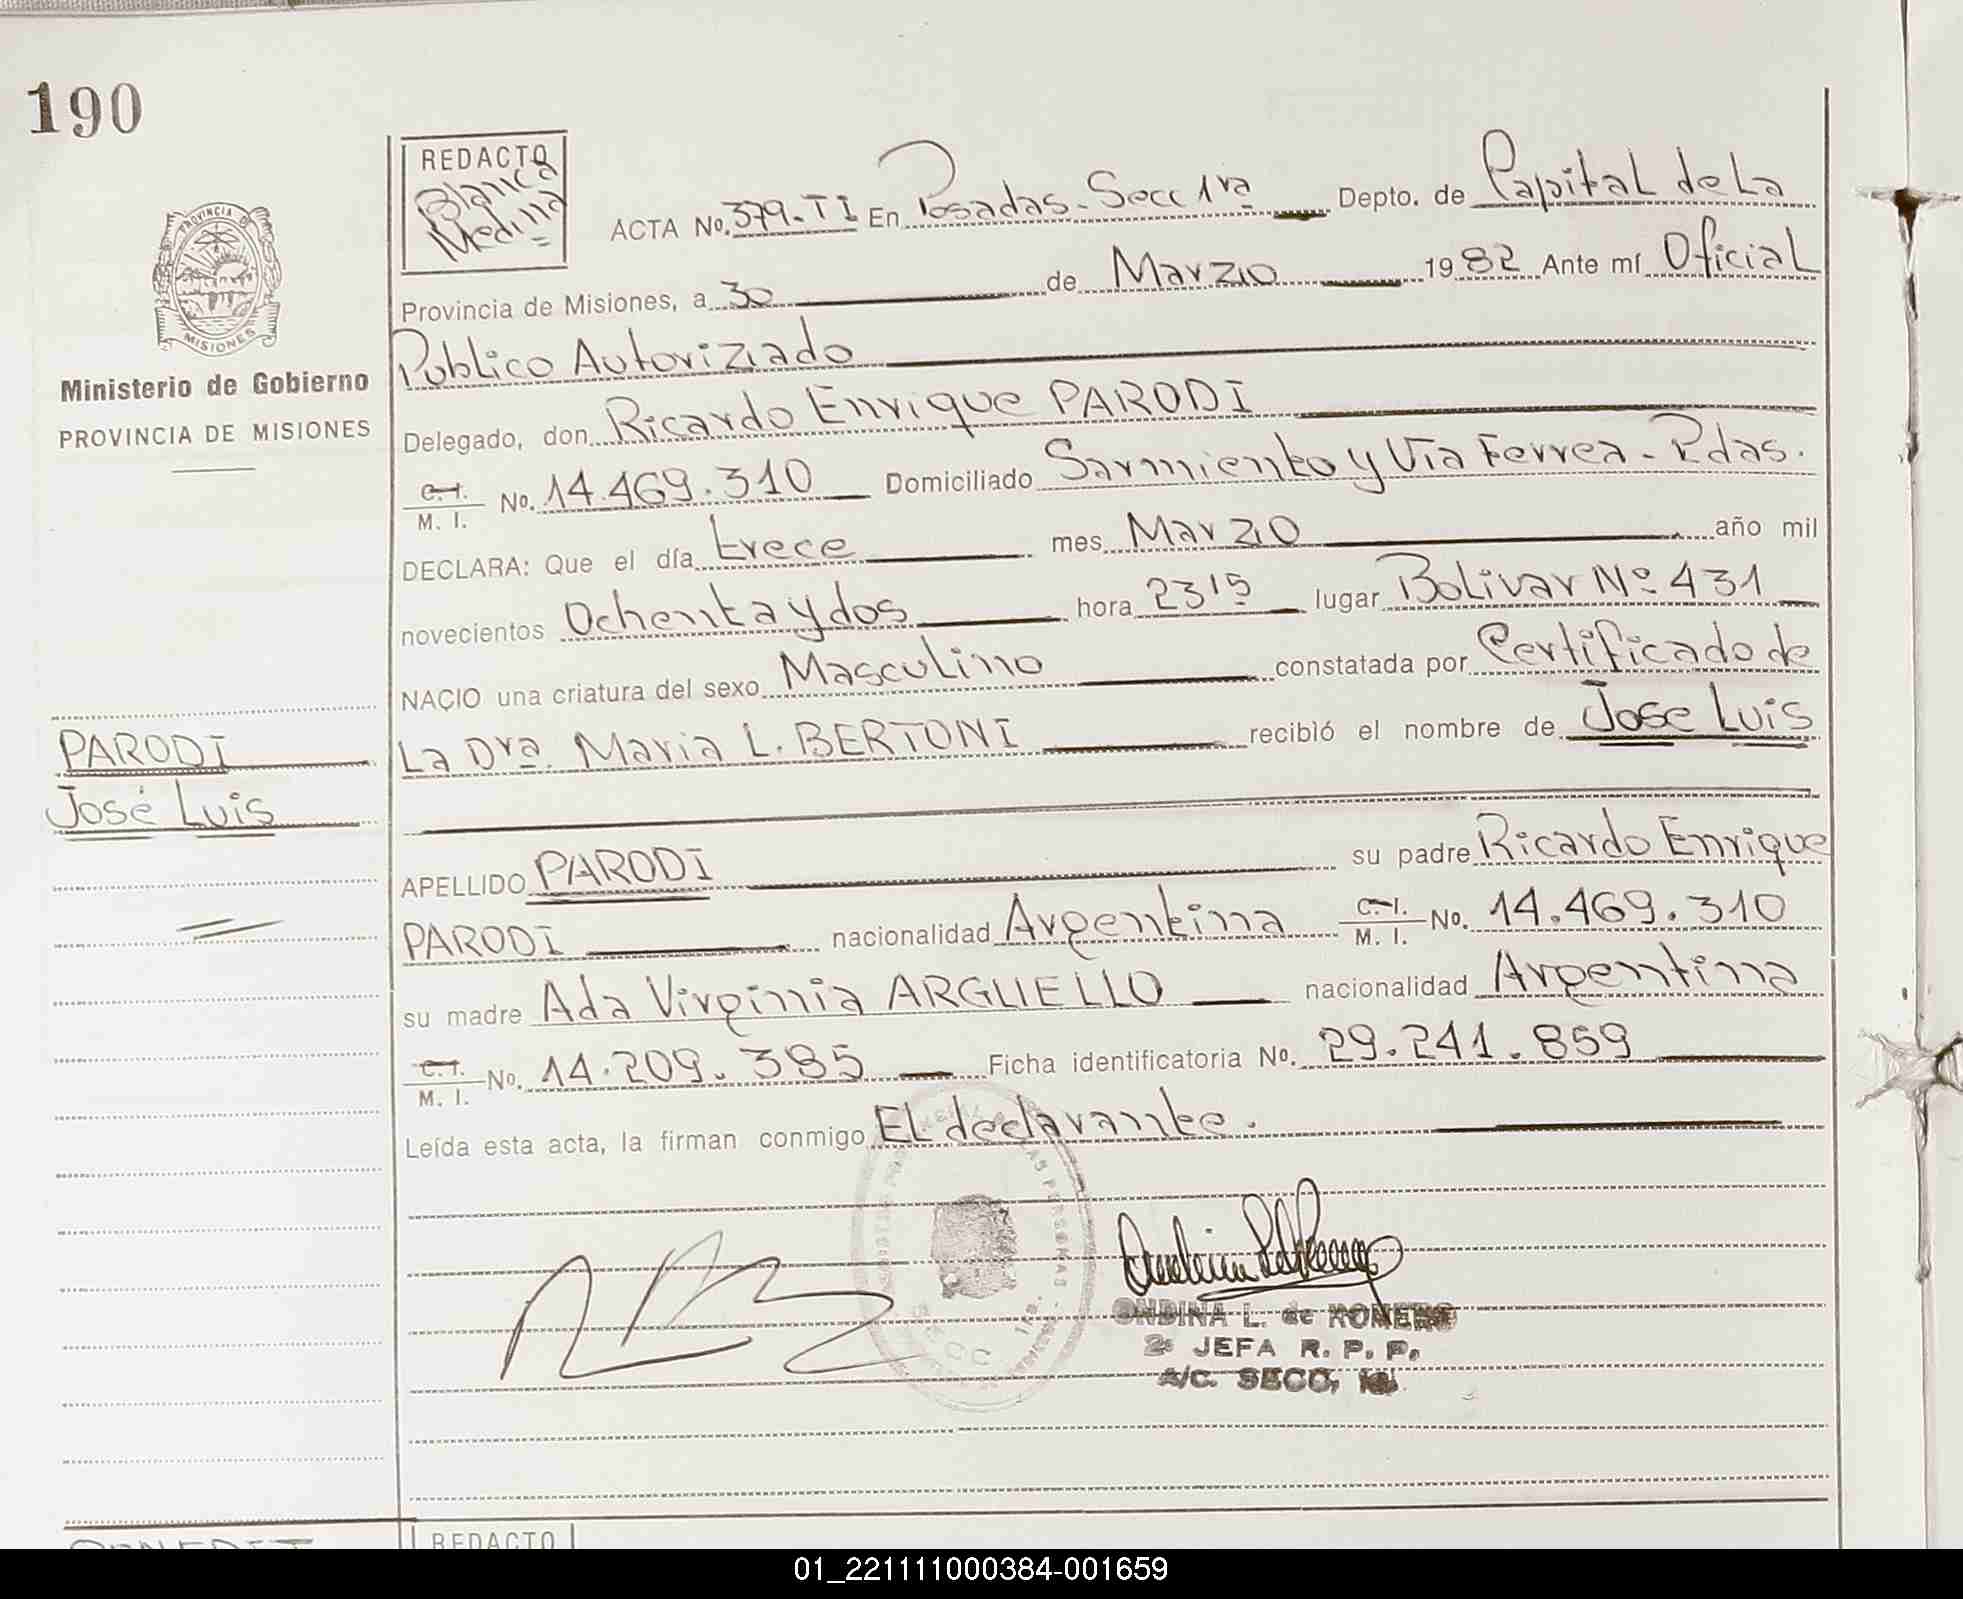 190
REDACTO
Blanca
Medina
ACTA No. 379-TI En Posadas-Secc 1ra Depto. de Capital de La
Provincia de Misiones, a 30 de Marzo 1982 Ante mí Oficial
Publico Autorizado
Delegado, don Ricardo Enrique PARODI
C.I. M. I. No. 14.469.310 Domiciliado Sarmiento y Via Ferrea - Pdas.
DECLARA: Que el día trece mes Marzo año mil
novecientos Ochenta y dos hora 2315 lugar Bolivar Nº 431
NACIO una criatura del sexo Masculino constatada por Certificado de
La Dra. Maria L. BERTONI recibió el nombre de Jose Luis
APELLIDO PARODI su padre Ricardo Enrique
PARODI nacionalidad Argentina C.I. M. I. No. 14.469.310
su madre Ada Virginia ARGUELLO nacionalidad Argentina
C.I. M. I. No. 14.209.385 Ficha identificatoria No. 29.241.859
Leída esta acta, la firman conmigo El declarante.
ONDINA L. de ROMERO
2ª JEFA R. P. P.
A/C. SECC,
PROVINCIA D
MISIONES
Ministerio de Gobierno
PROVINCIA DE MISIONES
PARODI
José Luis
REDACTO
01_221111000384-001659